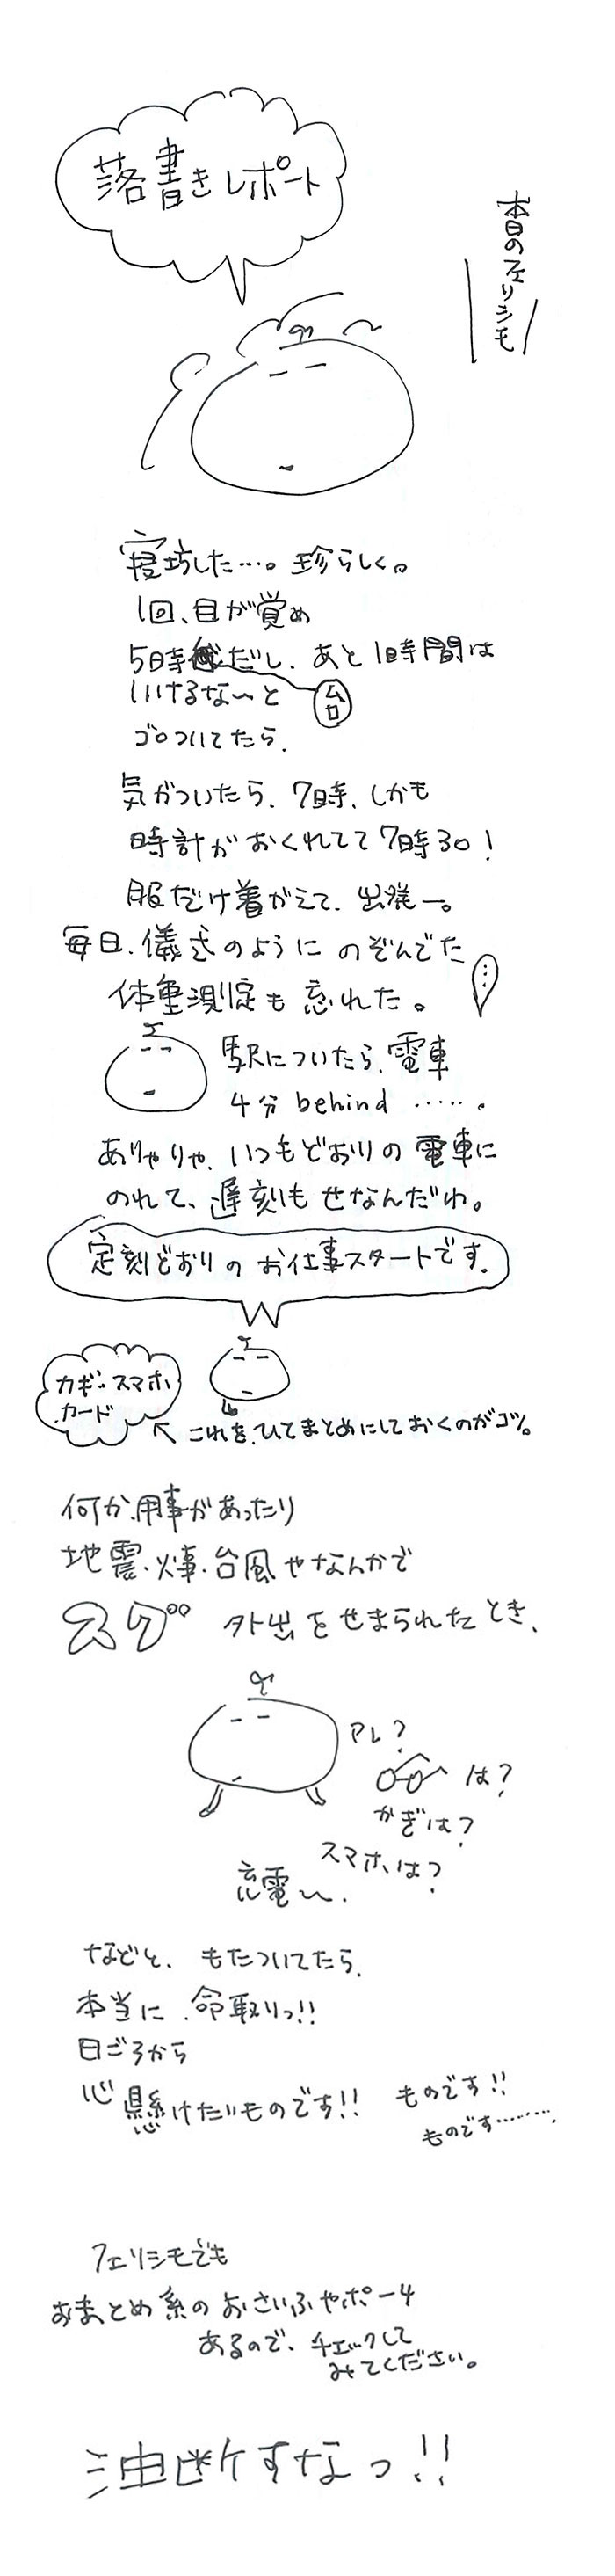 落書きレポート
本日のフェリシモ
寝坊した…。珍らしく。
1回、目が覚め
5時台だし、あと1時間は
いけるな〜と
ゴロついてたら、
気がついたら、7時、しかも
時計がおくれてて7時30!
服だけ着がえて、出発ー。
毎日、儀式のようにのぞんでた
体重測定も忘れた。
…
駅についたら、電車
4分behind……。
ありゃりゃ、いつもどおりの電車に
のれて、遅刻もせなんだわ。
定刻どおりのお仕事スタートです。
カギ・スマホ
カード
これを、ひとまとめにしておくのがコツ。
何か用事があったり
地震・火事・台風やなんかで
スグ 外出をせまられたとき、
アレ?
は?
かぎは?
スマホは?
充電〜、
などと、もたついてたら、
本当に、命取りっ!!
日ごろから
心懸けたいものです!! ものです!!
ものです………、
フェリシモでも
おまとめ系のおさいふやポーチ
あるので、チェックして
みてください。
油断すなっ!!